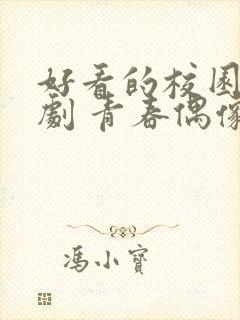 好看的校园
劇 青春偶像
馮小寶